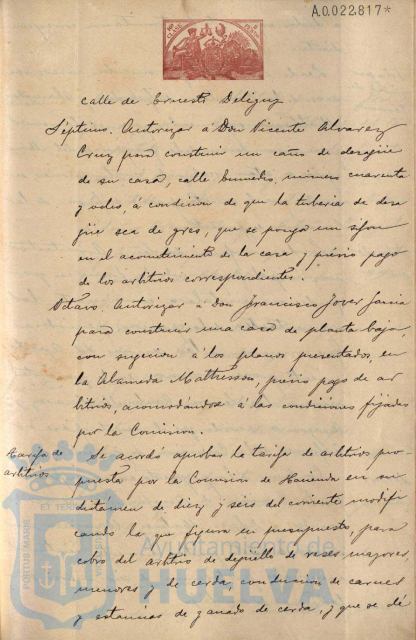 A.0.022.817*
calle de Ernesto Deligny
Séptimo. Autorizar á Don Vicente Alvarez
Cruz para construir un caño de desagüe
de su casa, calle numero cuarenta
y ocho, á condicion de que la tuberia de desa
güe sea de gres, que se ponga un sifon
en el acometimiento de la casa y prévio pago
de los arbitrios correspondientes.
Octavo. Autorizar á Don Francisco Jover Garcia
para construir una casa de planta baja,
con sugecion á los planos presentados, en
la Alameda prévio pago de ar
bitrios, acomodándose á las condiciones fijadas
por la Comision.
Tarifa de
arbitrios
Se acordó aprobar la tarifa de arbitrios pro-
puesta por la Comision de Hacienda en su
dictamen de diez y seis del corriente modifi
cando la que figura en presupuesto, para
cobro del arbitrio de degüello de reses mayores
menores y de cerda, conduccion de carnes
y estancias de ganado de cerda, y que se dé
PORTUS MARIS
ET TERRAE
Ayuntamiento de
HUELVA